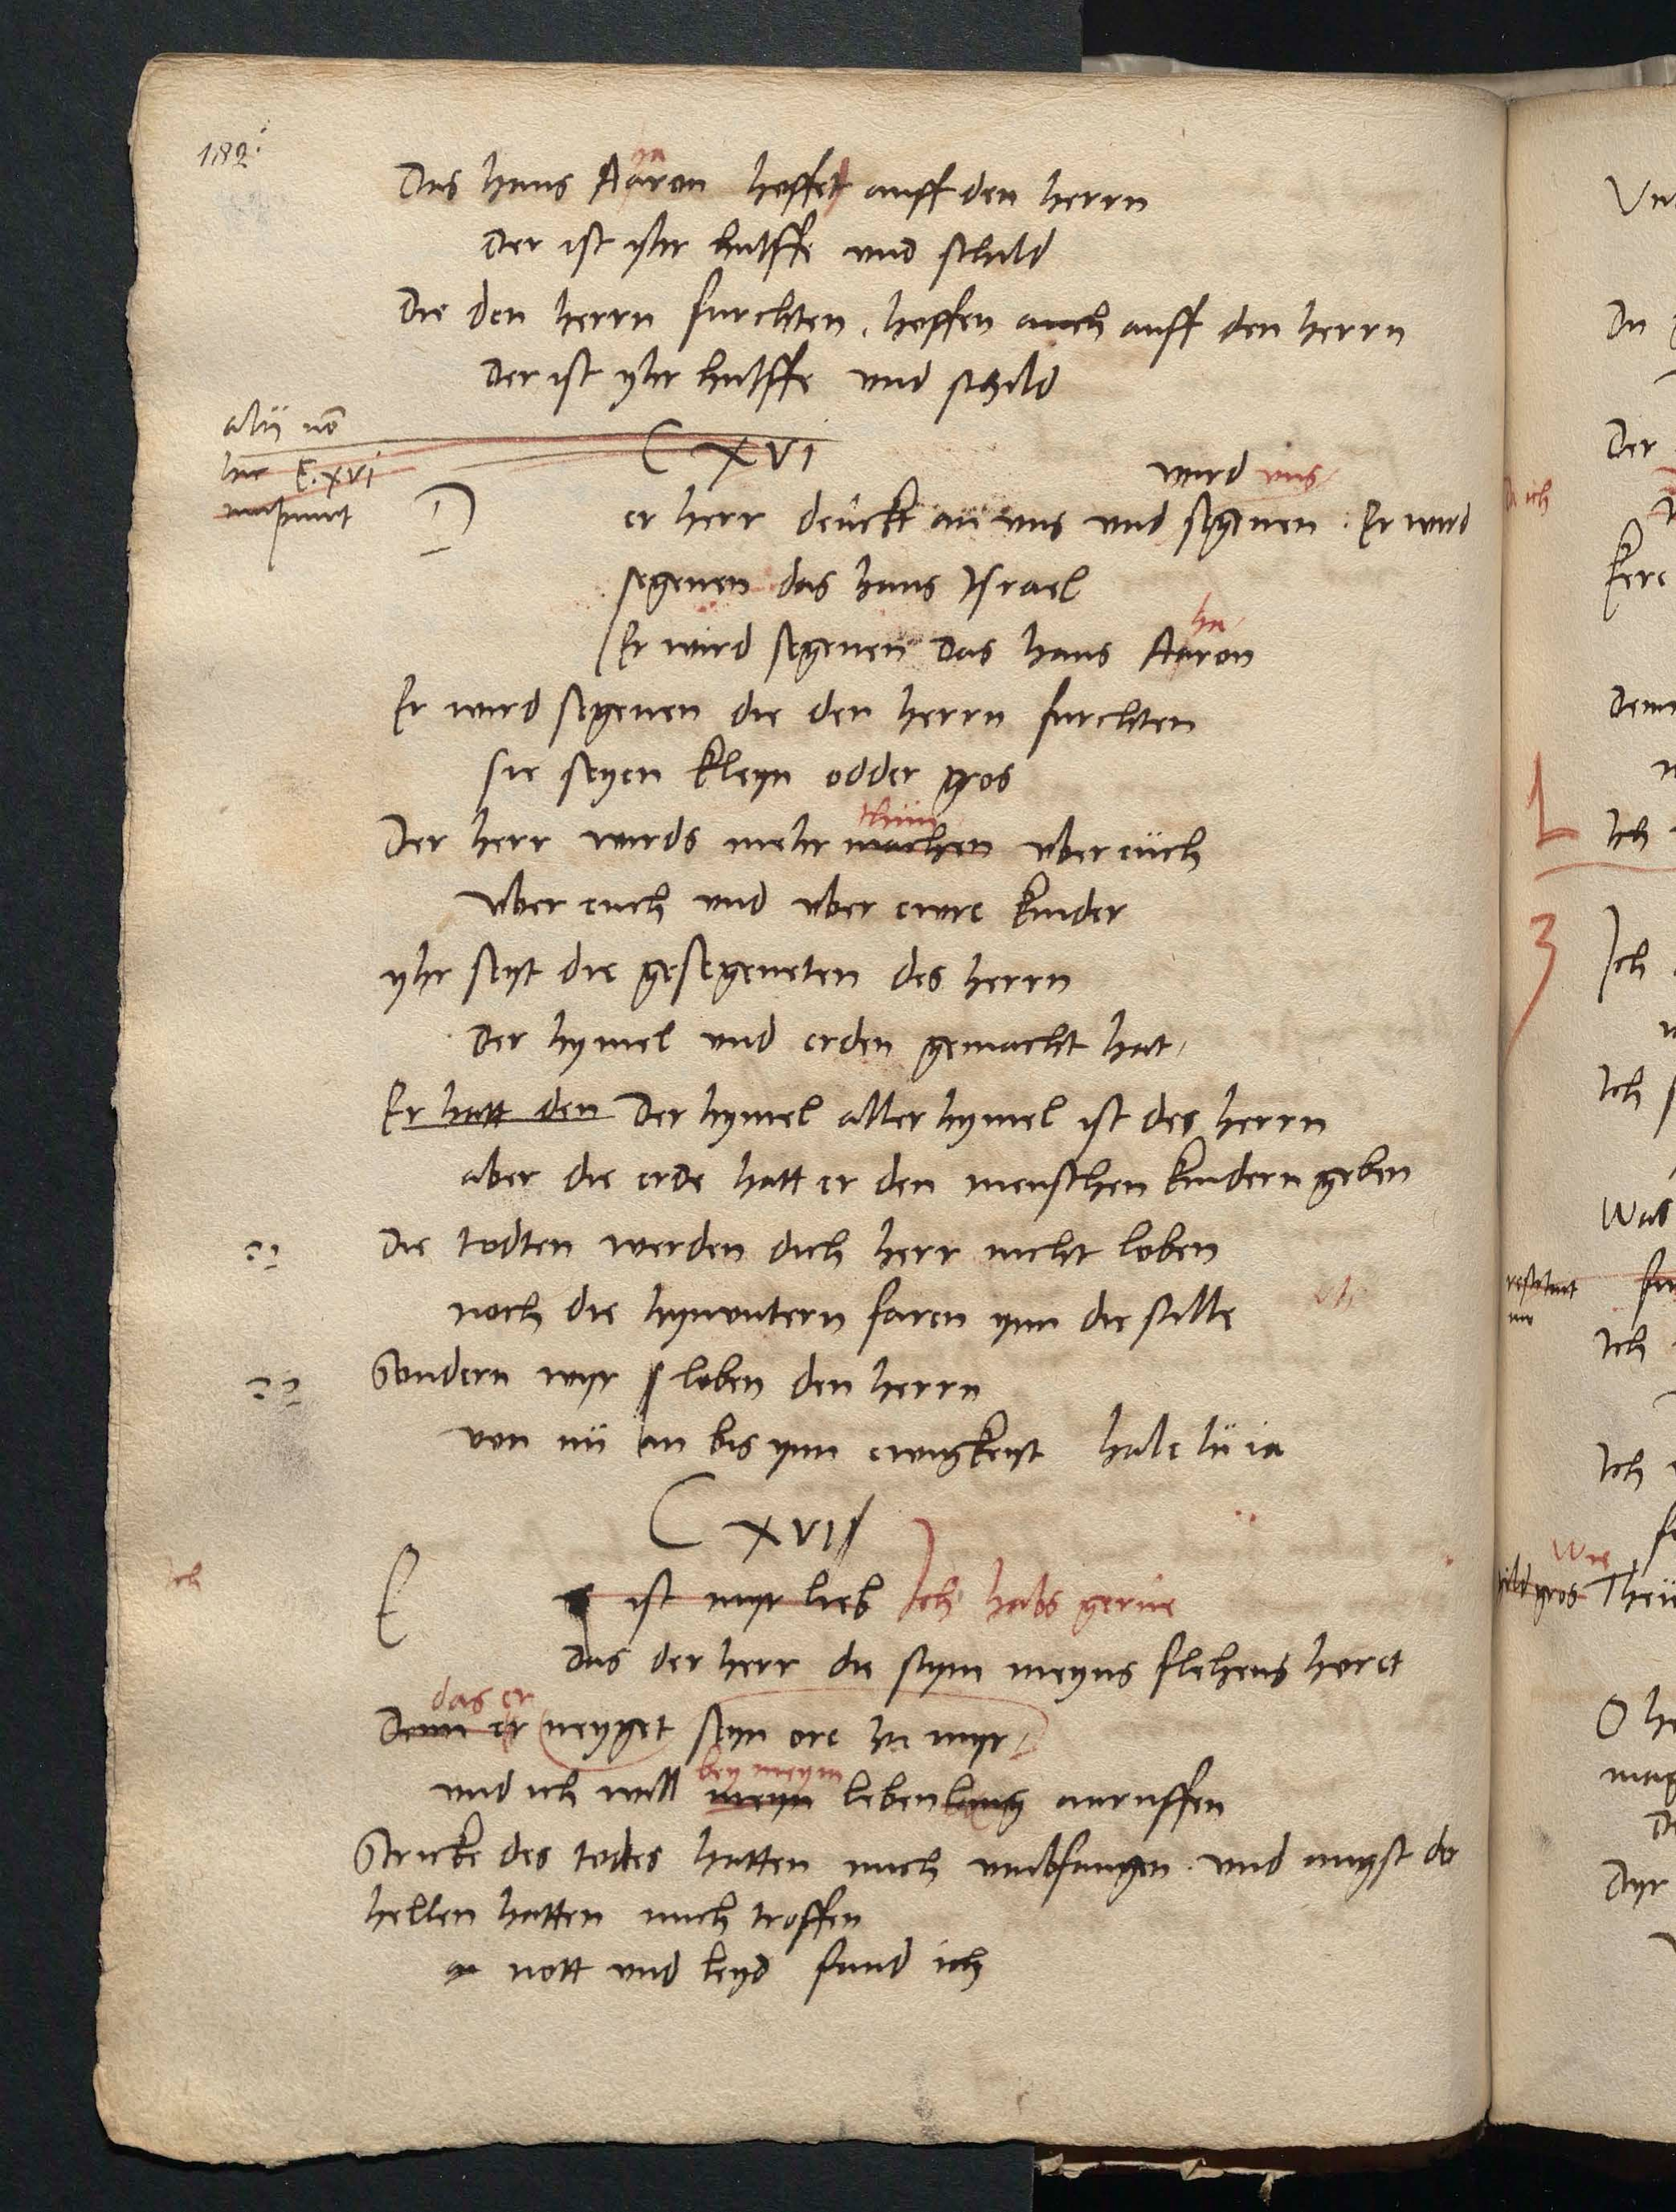 182
ha
Das haus Aaron hoffet auff den herrn
Der ist yhr hulffe und schild
Die den herrn furchten, hoffen auch auff den herrn
Der ist yhr hulffe und schild
alii nō
hic C. xvi
incipiunt
C XVI
wird uns
Der herr denckt an uns und segenen. Er wird
segenen das haus Israel
ha
Er wird segenen das haus Aaron
Er wird segenen die den herrn furchten
sie seyen kleyn odder gros
thun
Der herr wirds mehr machen uber euch
uber euch und uber ewre kinder
yhr seyt die gesegeneten des herrn
der hymel und erden gemacht hat
Er hatt den Der hymel aller hymel ist des herrn
aber die erde hatt er den menschen kindern geben
Die todten werden dich herr nicht loben
noch die hynuntern faren ynn die stille
Sondern wyr loben den herrn
von nu an bis ynn ewigkeyt haleluia
C XVII
E ist myr lieb Ich habs gerne
Das der herr die stym meyns flehens horet
das er
Denn er neyget seyn ore zu myr
bey meym
und ich will meyn leben lang anruffen
Stricke des todtes hatten mich umbfangen. und angst der
hellen hatten mich troffen
nott und leyd fund ich